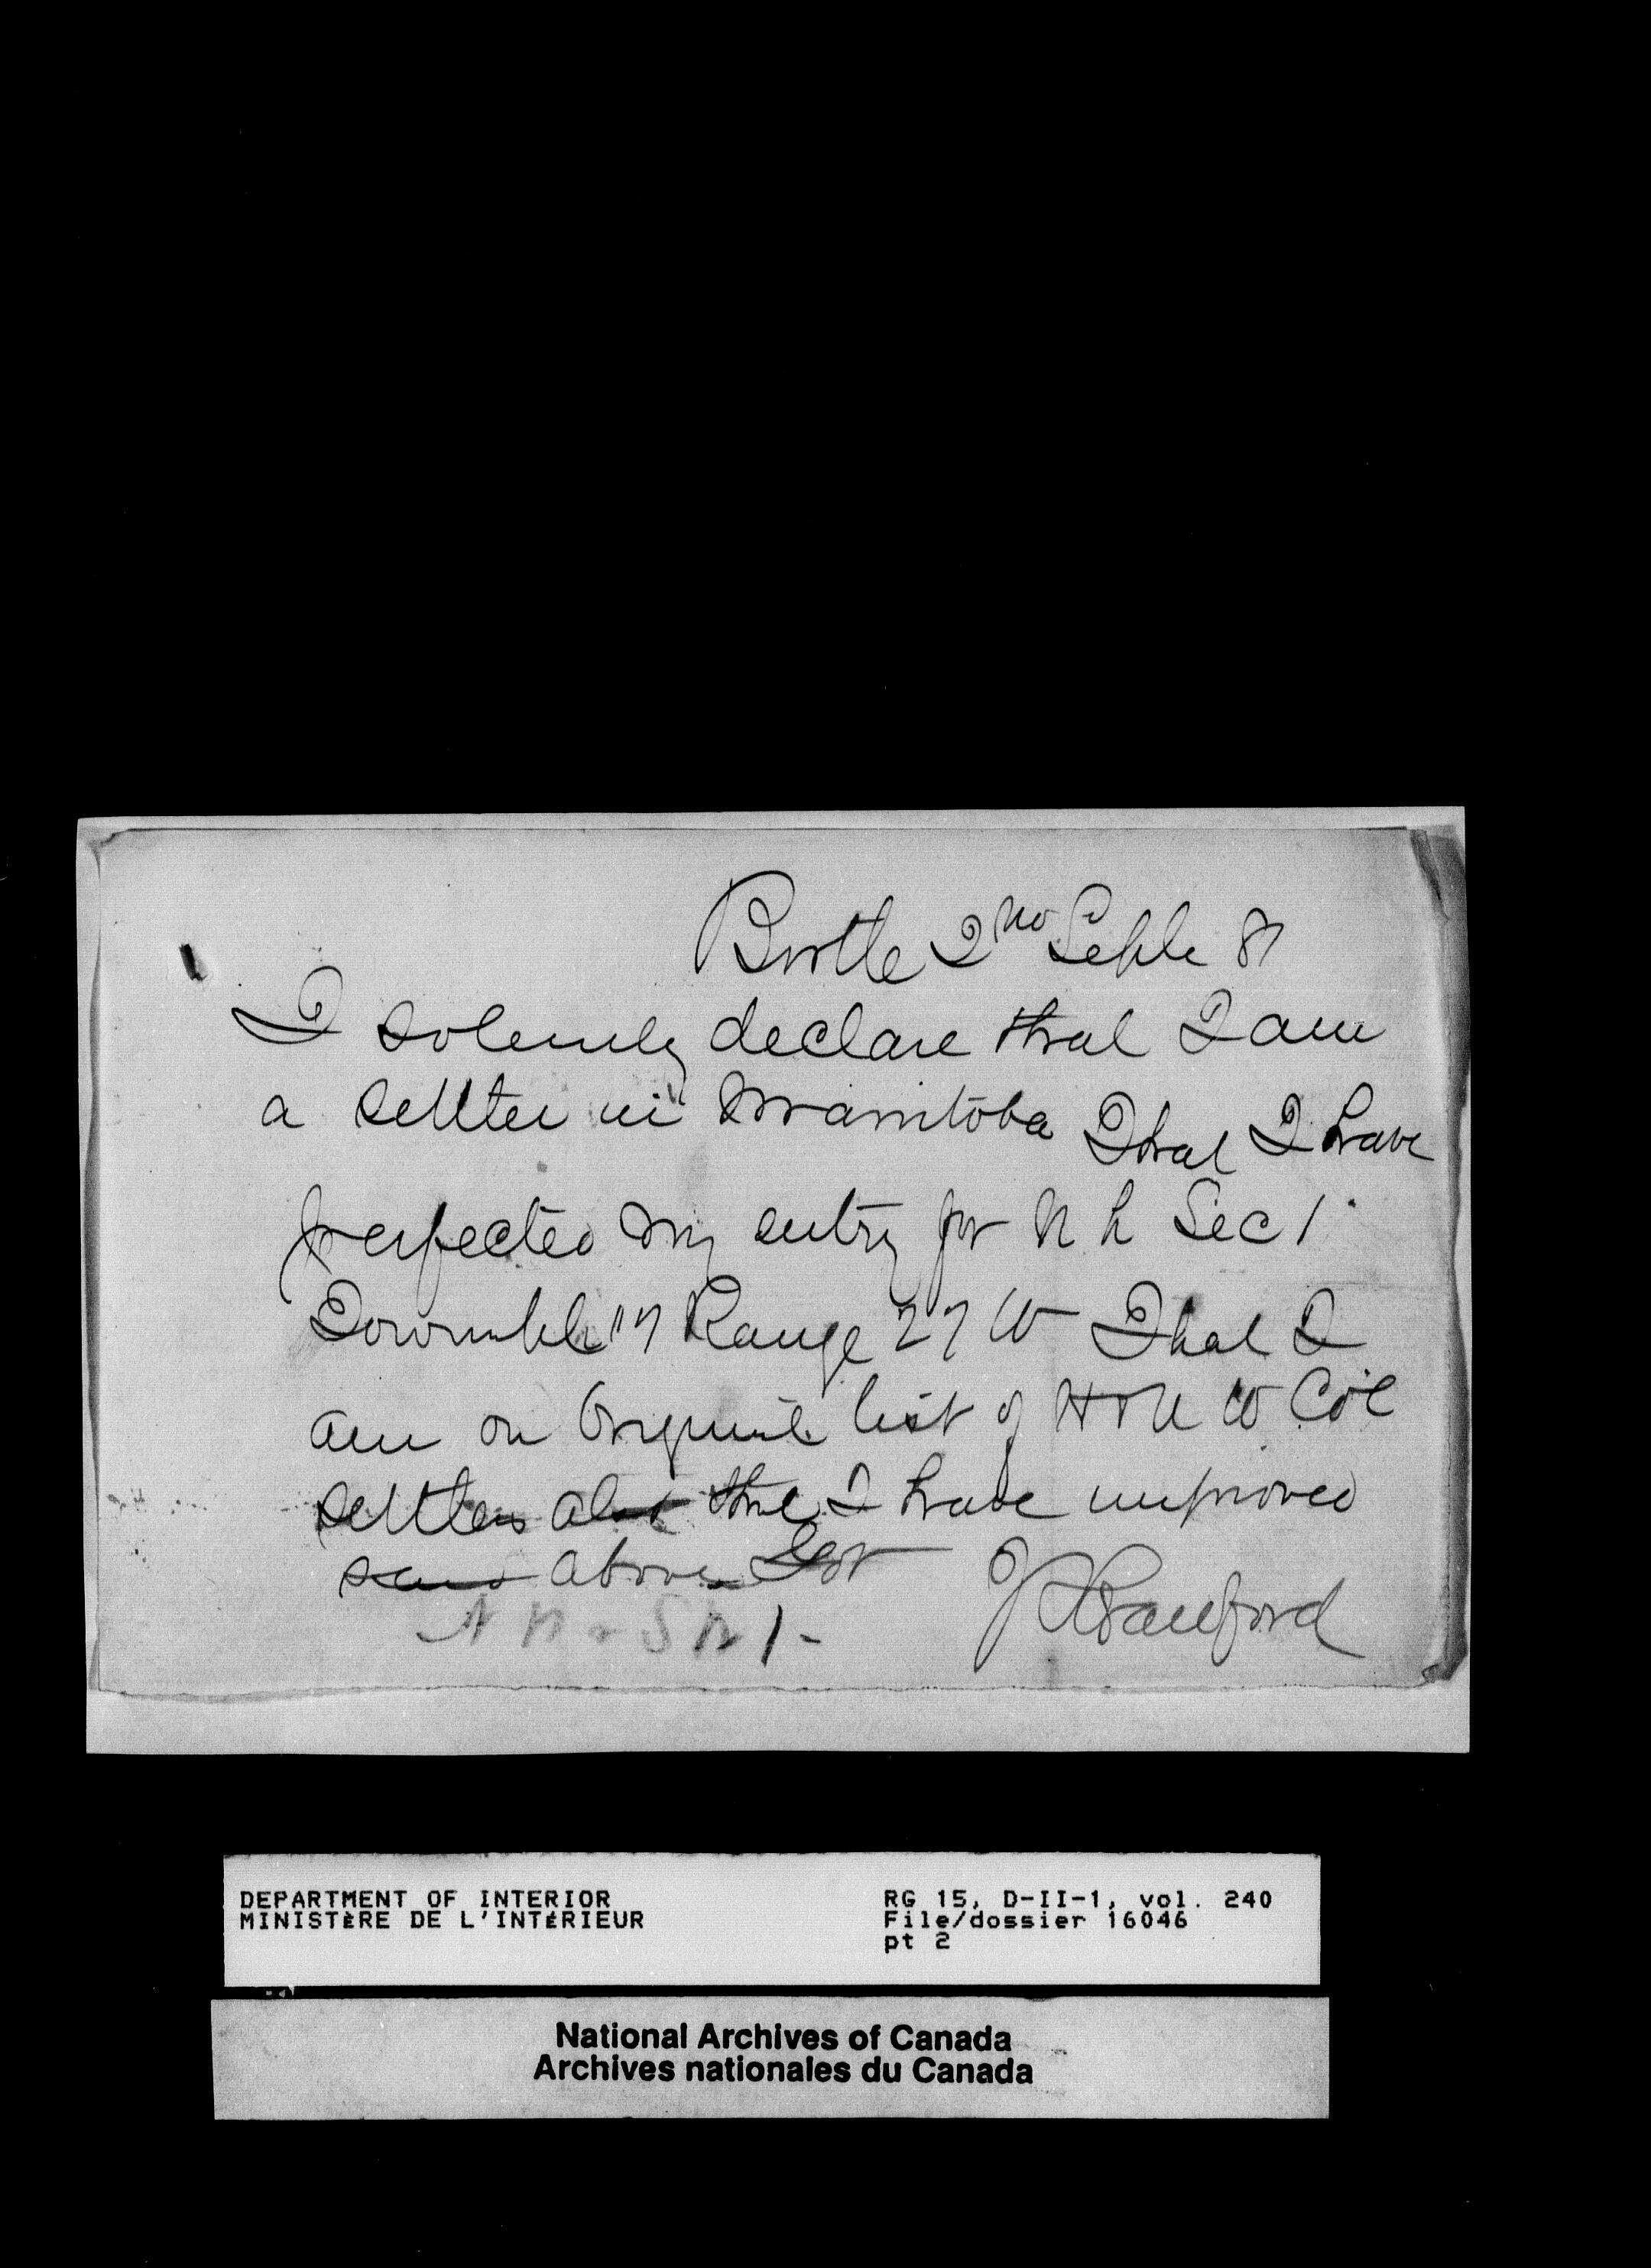 Birtle 2nd Septr 81
I solemnly declare that I am
a settler in Manitoba That I have
perfected my entry for N h Sec 1
Township 17 Range 27 W That I
am on Original list of H & N W Col
settlers also that I have improved
said above Lot
J Pauford
1 -
DEPARTMENT OF INTERIOR
MINISTÈRE DE L'INTÉRIEUR
RG 15, D-II-1, vol. 240
File/dossier 16046
pt 2
National Archives of Canada
Archives nationales du Canada